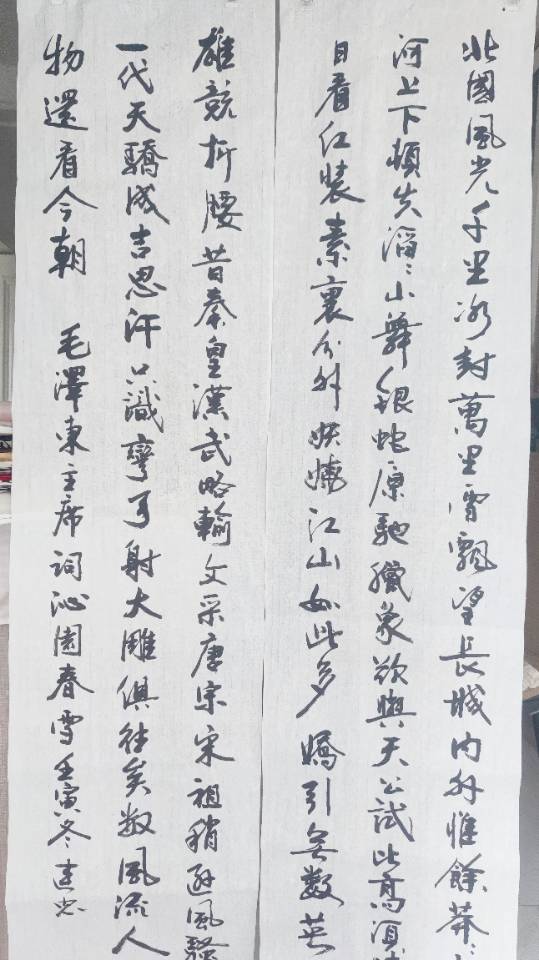 北國風光千里冰封萬里雪飄望長城內外惟餘莽〻
河上下頓失滔〻山舞銀蛇原馳臘象欲與天公試比高須
日看紅裝素裹分外妖嬈江山如此多嬌引無數英
雄競折腰昔秦皇漢武略輸文采唐宗宋祖稍遜風騷
一代天驕成吉思汗只識彎弓射大雕俱往矣數風流人
物還看今朝 毛澤東主席詞沁園春雪壬寅冬建忠